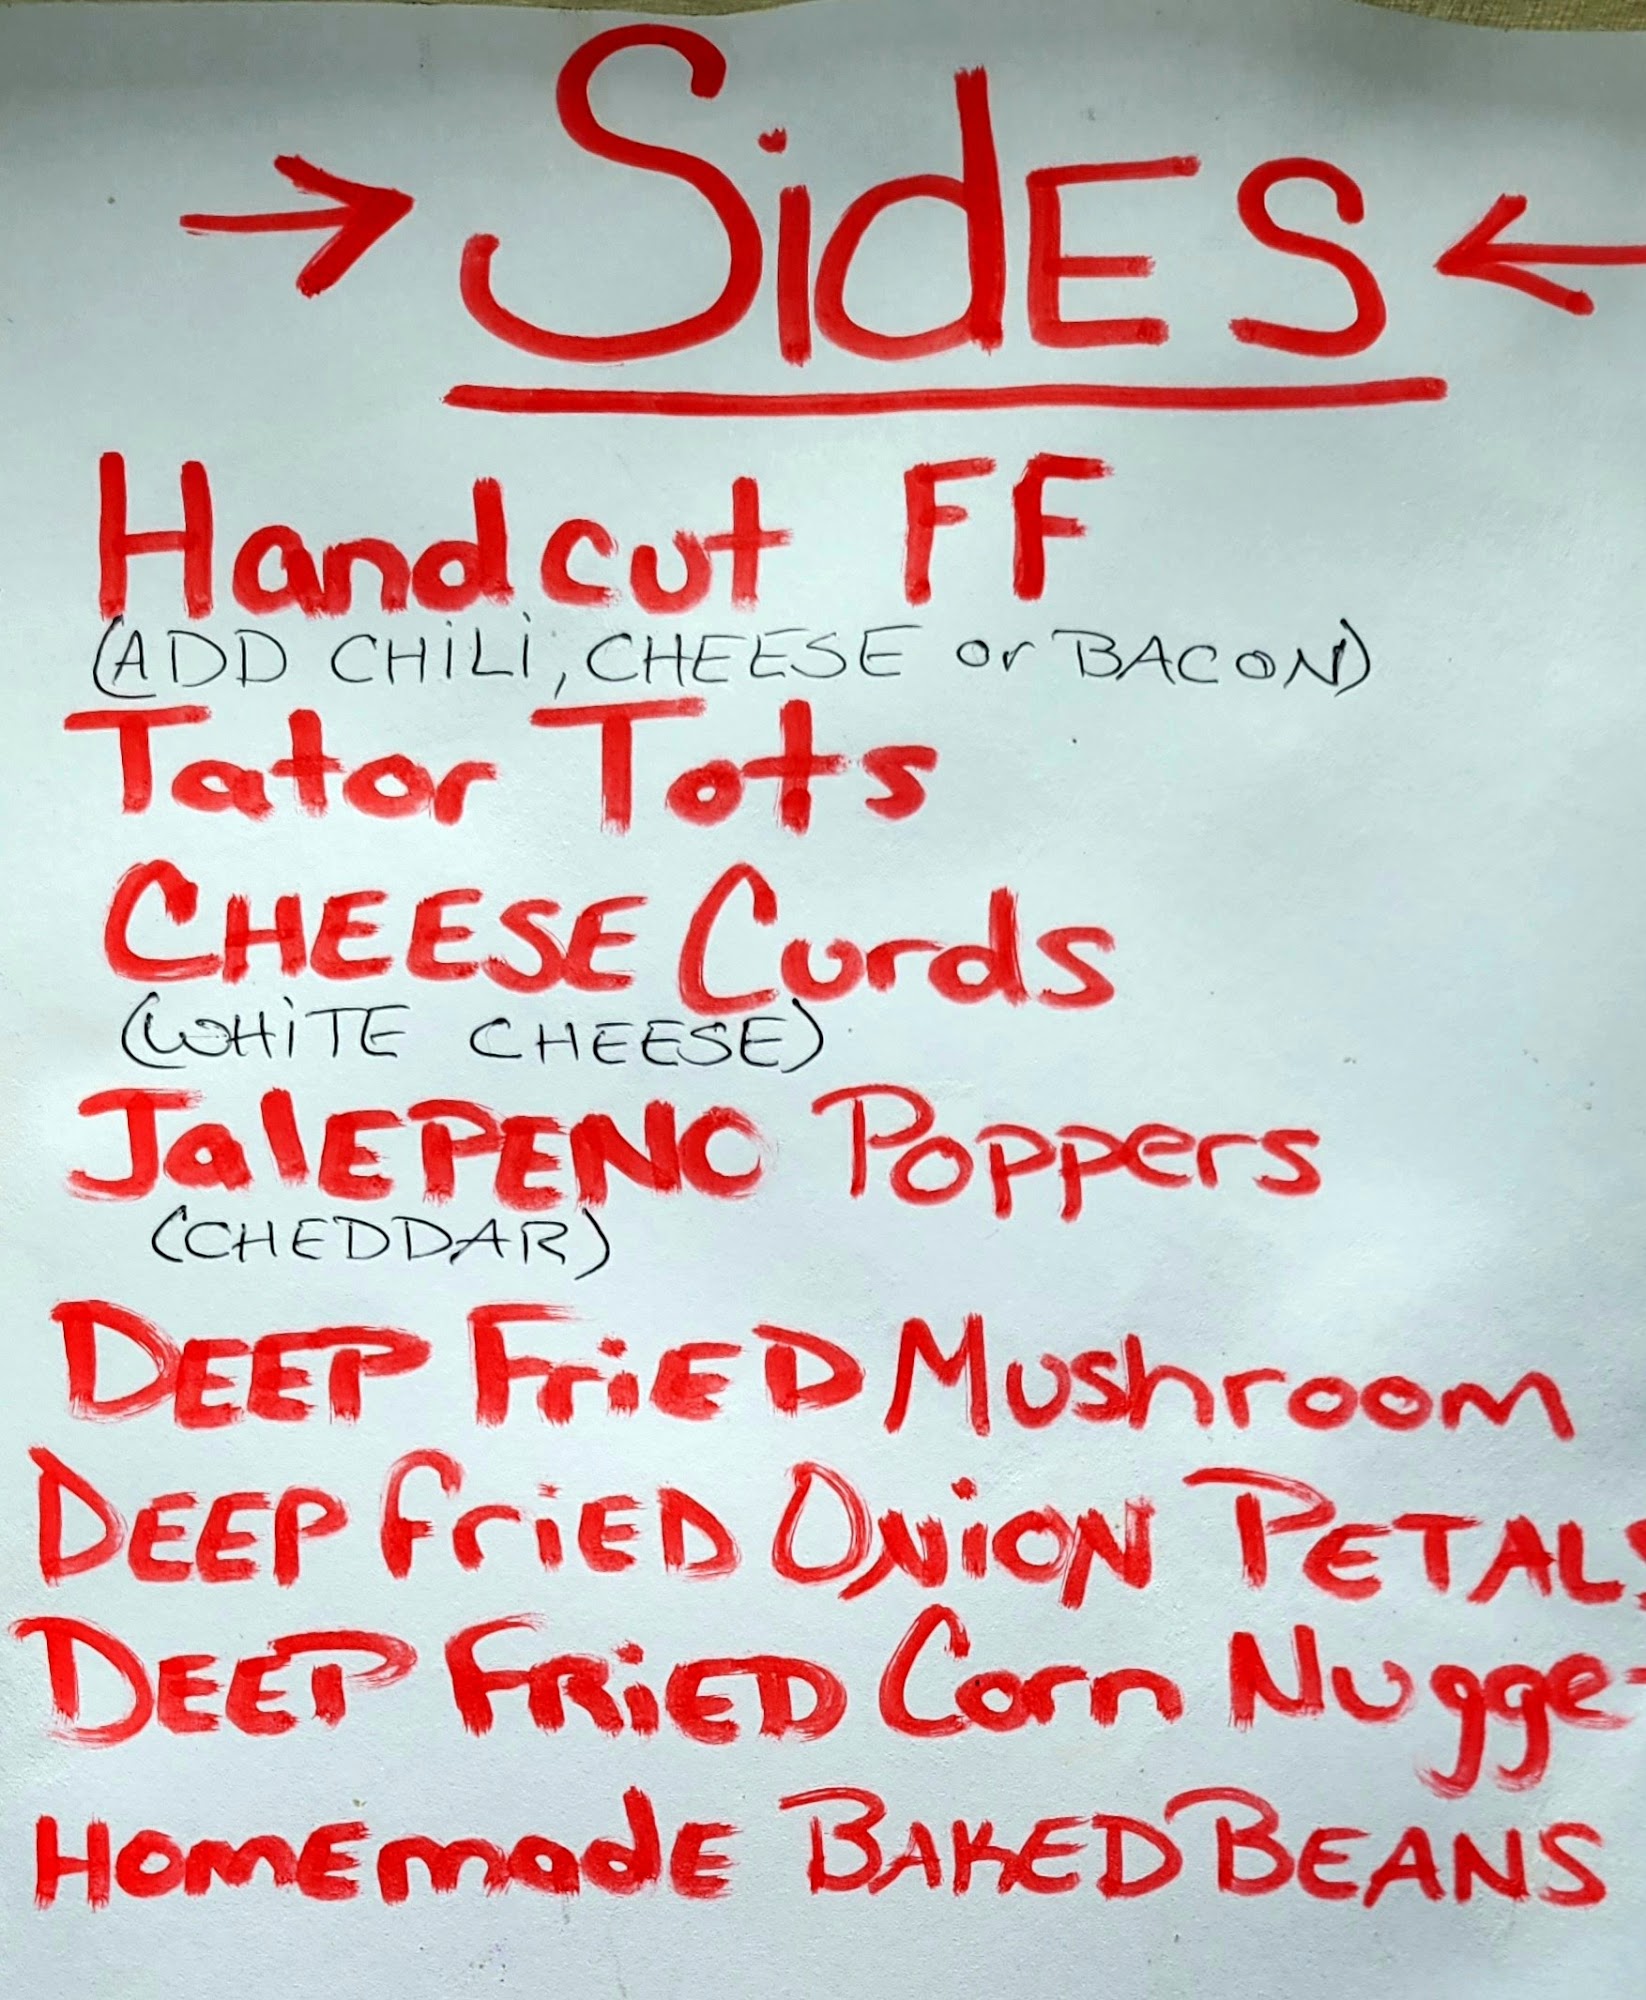 → SidES ←
Handcut FF
(ADD CHiLi, CHEESE or BACON)
Tator Tots
CHEESE Curds
(WHiTE CHEESE)
JalEPENO Poppers
(CHEDDAR)
DEEP FriED Mushroom
DEEP FriED ONiON PETALS
DEEP FRiED Corn Nugge
HomEmadE BAKED BEANS